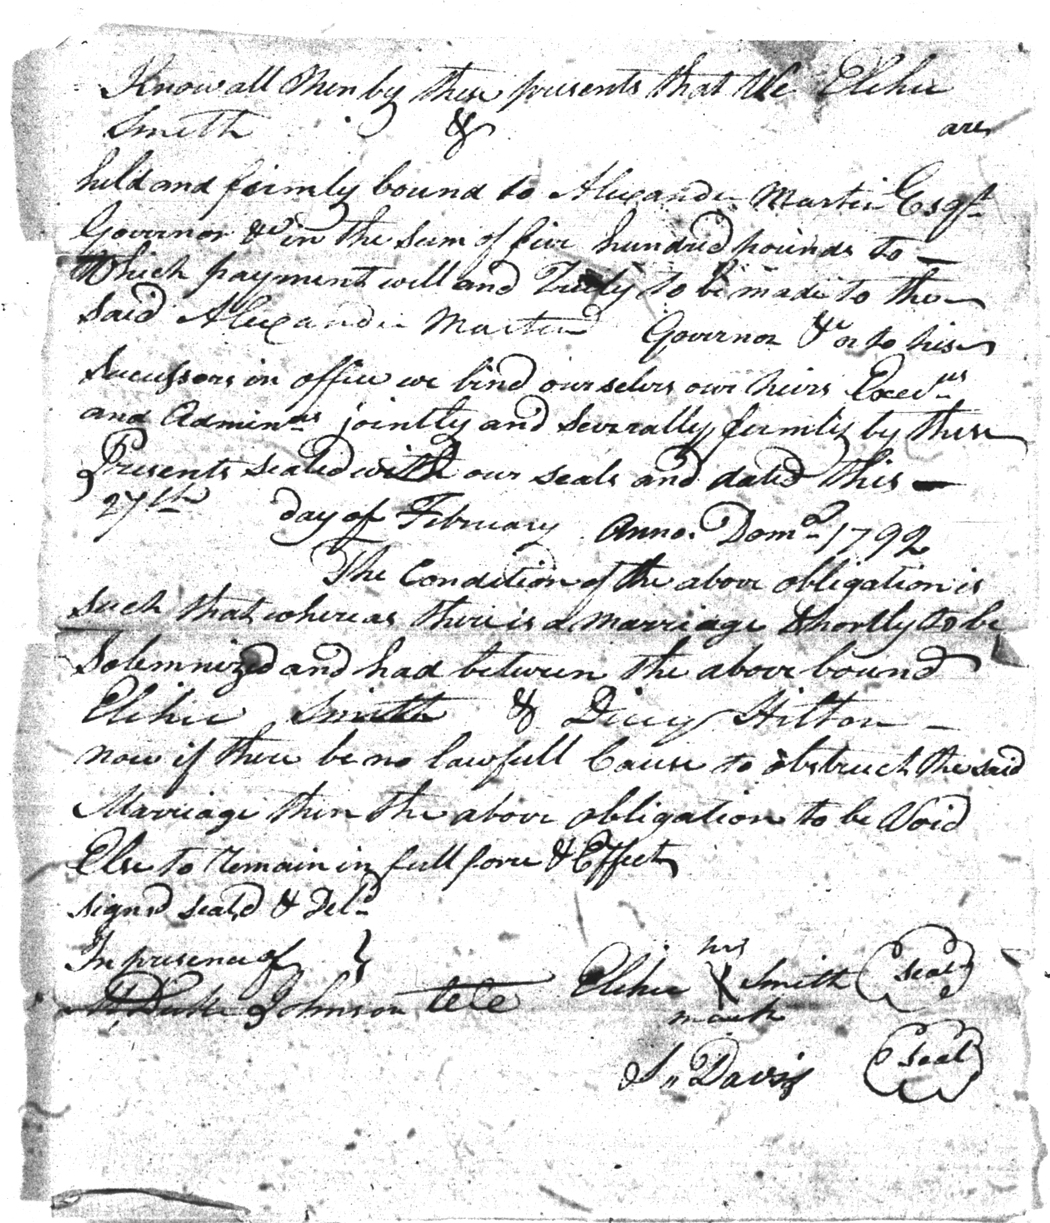 Know all Men by these presents that We Elihu
Smith & are
held and firmly bound to Alexander Martin Esqr.
Governor &c in the Sum of five hundred pounds to
Which payment will and Truly to be made to the
Said Alexander Martin Governor &c or to his
Successors in office we bind ourselves our heirs Execrs
and Adminrs jointly and Severally firmly by these
Presents sealed with our seals and dated this
27th day of February Anno. Domo. 1792
The Condition of the above obligation is
such that whereas there is a Marriage Shortly to be
Solemnized and had between the above bound
Elihu Smith & Dicey Hilton
now if there be no lawfull Cause to obstruct the said
Marriage then the above obligation to be Void
Else to remain in full force & Effect
signd seald & Deld
In presence of }
Duke Johnson
Elihu his X mark Smith Seal
Davis Seal